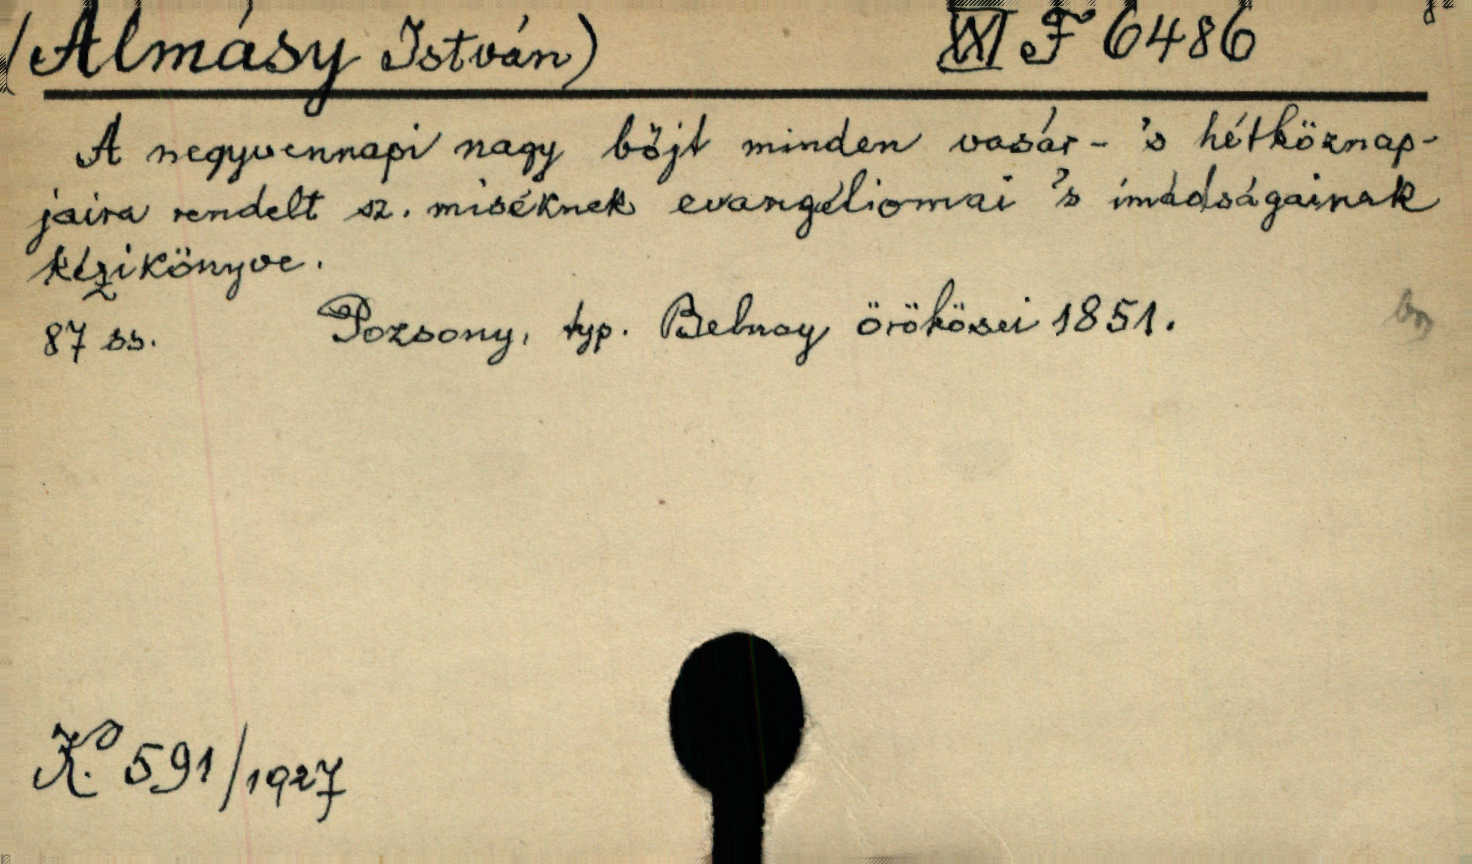 (Almásy István) XXI F 6486
A negyvennapi nagy bőjt minden vasár- 's hétköznap-
jaira rendelt sz. miséknek evangéliomai 's imádságainak
kézikönyve.
87 ss. Pozsony, typ. Belnay örökösei 1851.
K. 591/1927